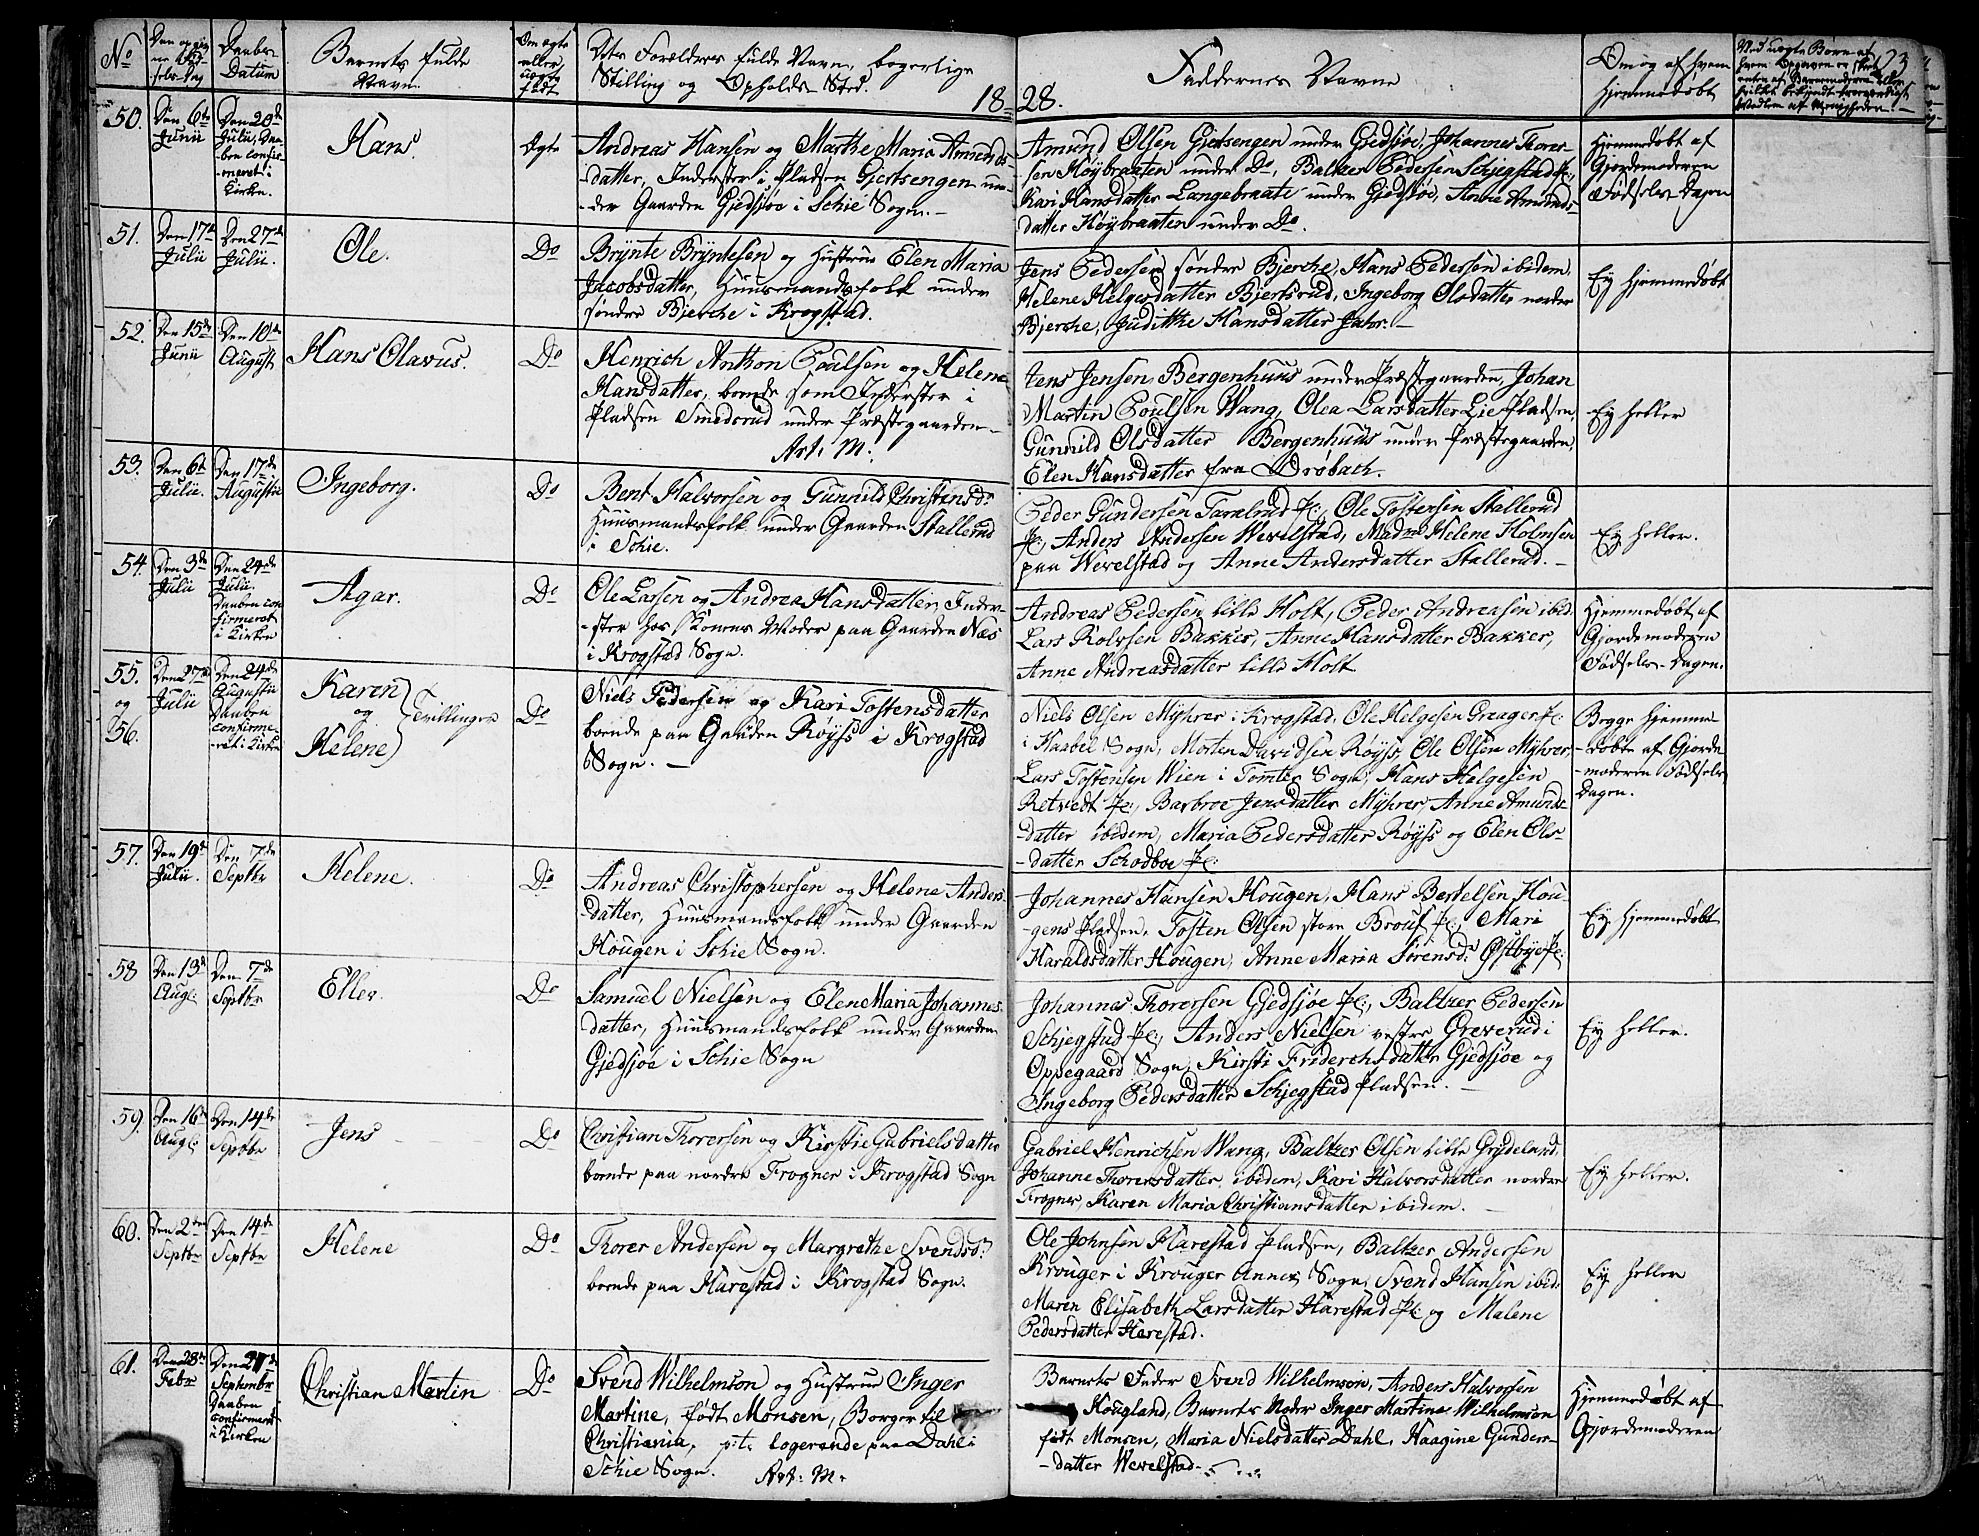 No
Daabs
Datum
Barnets fulde
Navn
Om ægte
eller
uægte
født
Dets Forældres fulde Navn, borgerlige
Stilling og Opholds-Sted.
18
28.
Faddernes Navne
Om og af hvem
hjemmedøbt
50.
Den 6te
Junii
Den 20de
Julii, Daa-
ben confir-
meret i
Kirken.
Hans.
Ægte
Andreas Hansen og Marthe Maria Amunds-
datter, Inderster i Pladsen Gjertsengen un-
der Gaarden Gjedsjøe i Schie Sogn.-
Amund Olsen Gjertsengen under Gjedsjøe, Johannes Thores-
sen Høybraaten under Do, Baltzer Pedersen Schjegstad
Kari Hansdatter Langebraate under Gjedsjøe, Anne Amunds-
datter Høybraaten under Do.
Hjemmedøbt af
Gjordemoderen
Fødsels-Dagen
51.
Den 17de
Julii
Den 27de
Julii.
Ole.
Do
Brynte Bryntesen og Hustrue Elen Maria
Jacobsdatter, Huusmandsfolk under
søndre Bjerche i Krogstad.
Jens Pedersen søndre Bjerche, Hans Pedersen ibidem
Helene Helgesdatter Bjertsrud, Ingeborg Olsdatter nordre
Bjerche, Judithe Hansdatter
Ey hjemmedøbt
52.
Den 15de
Junii
Den 10de
August
Hans Olavus.
Do
Henrich Anthon Poulsen og Helene
Hansdatter, boende som Inderster i
Pladsen Smedsrud under Præstegaarden-
Art: M:
Jens Jensen Bergenhuus under Præstegaarden, Johan
Martin Poulsen Wang, Olea Larsdatter Lie Pladsen,
Gunnild Olsdatter Bergenhuus under Præstegaarden,
Elen Hansdatter fra Drøbach.
Ey heller
53.
Den 6te
Julii.
Den 17de
Augustii
Ingeborg.
Do
Bent Halvorsen og Gunnild Christensd:
Huusmandsfolk under Gaarden Stallerud
i Schie.
Peder Gundersen Taralrud Pl:, Ole Tostensen Stallerud
Pl:, Anders Andersen Wevelstad, Madme Helene Holmsen
paa Wevelstad og Anne Andersdatter Stallerud.-
Ey heller.
54.
Den 3de
Julii
Den 24de
Julii.
Daaben con-
firmeret
i Kirken
Agar.
Do
Ole Larsen og Andrea Hansdatter, Inder-
-ster hos Konens Moder paa Gaarden Næs
i Krogstad Sogn.
Andreas Pedersen lille Holt, Peder Andreasen ibid.
Lars Rolvsen Bakker, Anne Hansdatter Bakker,
Anne Andreasdatter lille Holt
Hjemmedøbt af
Gjordemoderen
Fødsels-Dagen.
55.
og
56.
Den 27de
Julii
Den 24de
Augustii
Daaben
confirme-
ret i Kirken
Karen
og
Helene
Tvillinger
Do
Niels Pedersen og Kari Tostensdatter
boende paa Gaarden Røyss i Krogstad
Sogn. -
Niels Olsen Myhrer i Krogstad, Ole Helgesen Greager Pl:
i Haabøl Sogn, Morten Davidsen Røyss, Ole Olsen Myhrer,
Lars Tostensen Wien i Tomter Sogn, Hans Helgesen
Retvedt Pl:, Barbroe Jensdatter Myhrer, Anne Amunds-
datter ibidem, Maria Pedersdatter Røyss og Elen Ols-
-datter Schodboe Pl:
Begge hjemme-
-døbte af Gjorde-
moderen Fødsels
Dagen.
57.
Den 19de
Julii.
Den 7de
Septbr
Helene.
Do
Andreas Christophersen og Helene Anders-
datter, Huusmandsfolk under Gaarden
Hougen i Schie Sogn.
Johannes Hansen Hougen, Hans Bertelsen Hou-
-gens Pladsen. Tosten Olsen store Pl:, Mari
Haraldsdatter Hougen, Anne Maria Sørensd: Østbye Pl:
Ey hjemmedøbt
58
Den 13de
Aug:
Den 7de
Septbr
Eller.
Do
Samuel Nielsen og Elen Maria Johannes-
datter, Huusmandsfolk under Gaarden
Gjedsjøe i Schie Sogn
Johannes Thoresen Gjedsjøe Pl:, Baltzer Pedersen
Schjegstad Pl:, Anders Nielsen vestre Greverud i
Oppegaard Sogn, Kirsti Friderchsdatter Gjedsjøe og
Ingeborg Pedersdatter Schjegstad Pladsen. -
Ey heller.
59.
Den 16de
Aug:
Den 14de
Septbr
Jens
Do
Christian Thoresen og Kirstie Gabrielsdatter
boende paa nordre Frogner i Krogstad Sogn
Gabriel Henrichsen Wang, Baltzer Olsen lille Grydeland,
Johanne Thoresdatter ibidem, Kari Halvorsdatter nordre
Frogner, Karen Maria Christiansdatter ibidem. -
Ey heller.
60.
Den 2den
Septbr
Den 14de
Septbr
Helene
Do
Thorer Andersen og Margrethe Svendsd:
boende paa Harestad i Krogstad Sogn.
Ole Johnsen Harestad Pladsen, Baltzer Andersen
Krouger i Krouger Annex Sogn, Svend Hansen ibid:
Maren Elisabeth Larsdatter Harestad Pl: og Malene
Pedersdatter Harestad.
Ey heller
61.
Den 28de
Febr
Septembr
Daaben
confirmeret
i Kirken
Christian Martin
Do
Svend Wilhelmson og Hustrue Inger
Martine, født Monsen, Borger til
Christiania, p:t: logerende paa Dahl i
Schie Sogn. Art: M:
Barnets Fader Svend Wilhelmson, Anders Halvorsen
Hougland, Barnets Moder Inger Martine Wilhelmson
født Monsen, Maria Nielsdatter Dahl, Haagine Gunders-
-datter Wevelstad.
Hjemmedøbt af
Gjordemoderen